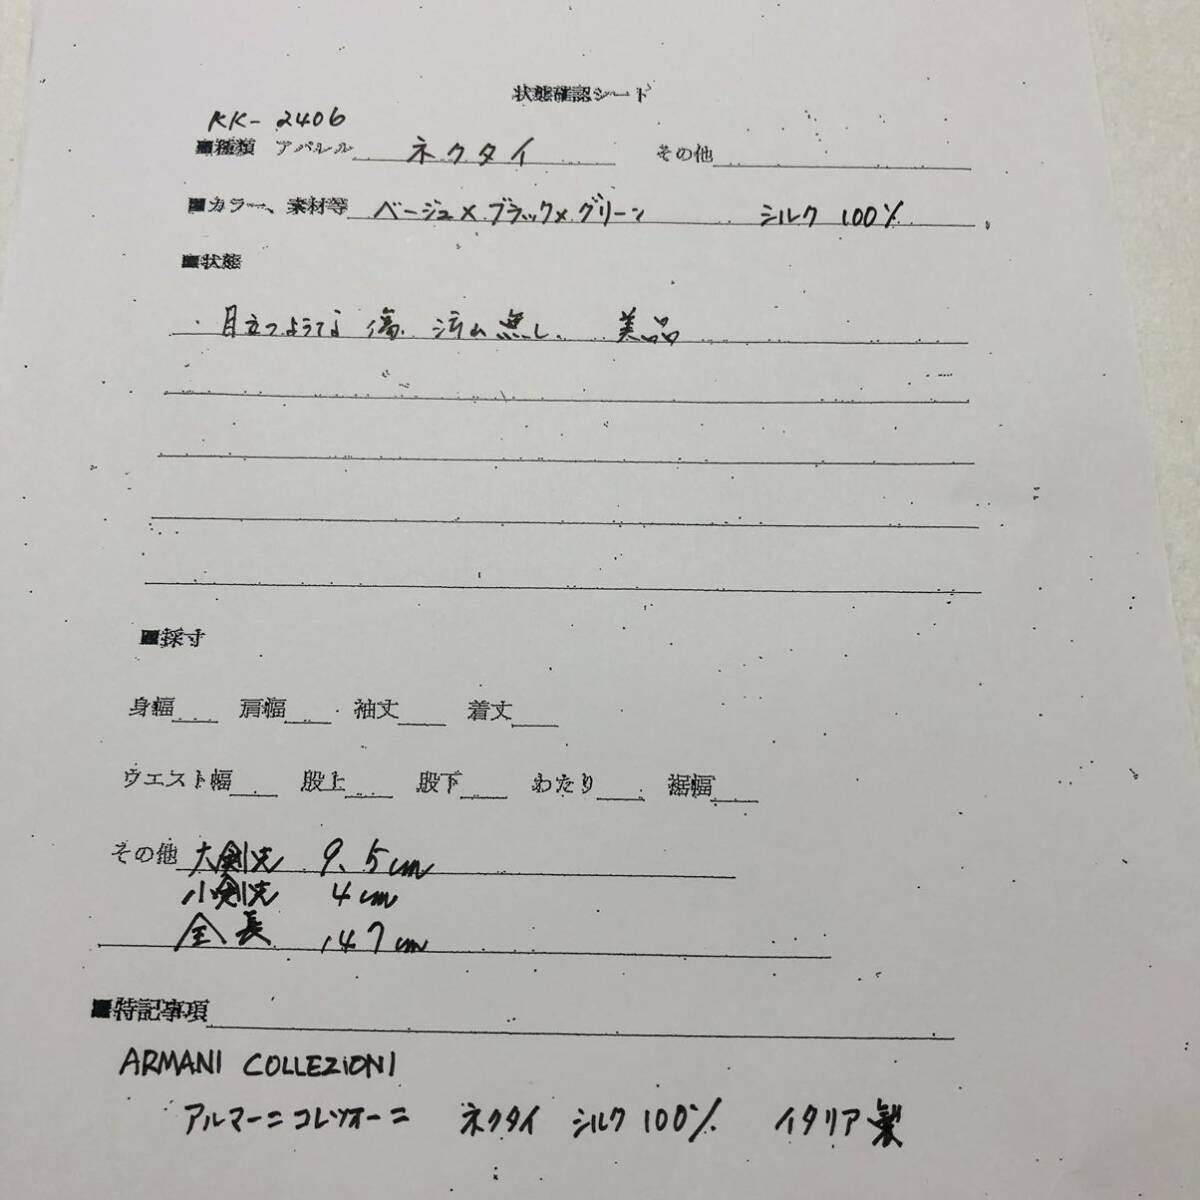 状態確認シート
KK-2406
■種類 アパレル ネクタイ その他
■カラー、素材等 ベージュ×ブラック×グリーン シルク 100%
■状態
・目立つような傷、汚れ無し、 美品
■採寸
身幅 肩幅 袖丈 着丈
ウエスト幅 股上 股下 わたり 裾幅
その他 大剣先 9.5cm
小剣先 4cm
全長 147cm
■特記事項
ARMANI COLLEZIONI
アルマーニコレツォーニ ネクタイ シルク 100% イタリア製